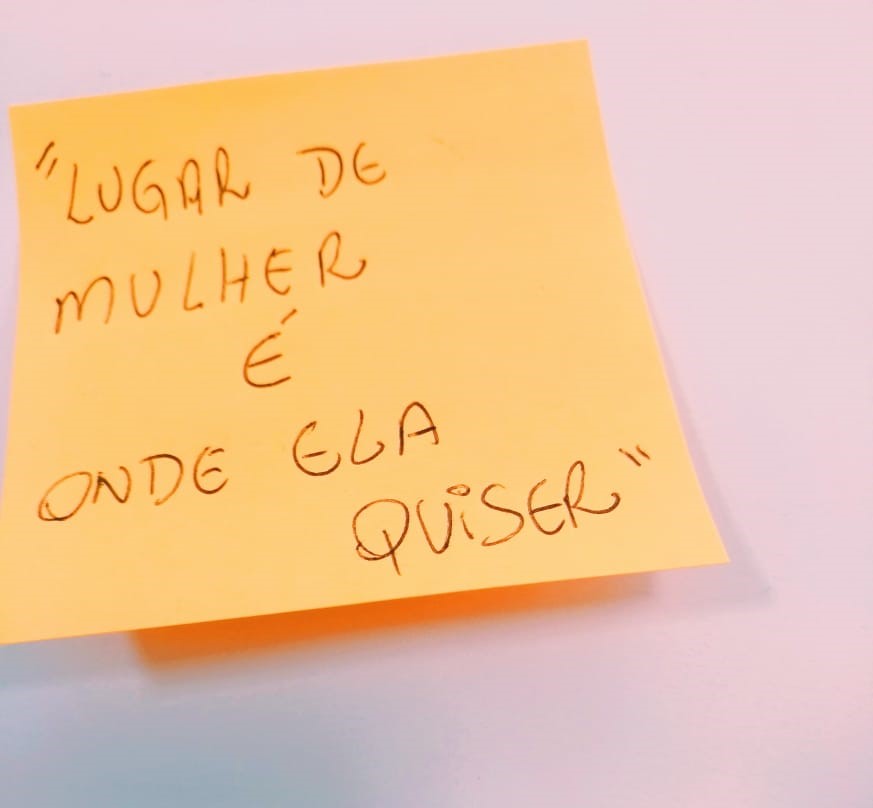 "LUGAR DE
MULHER
É
ONDE ELA
QUiSER"